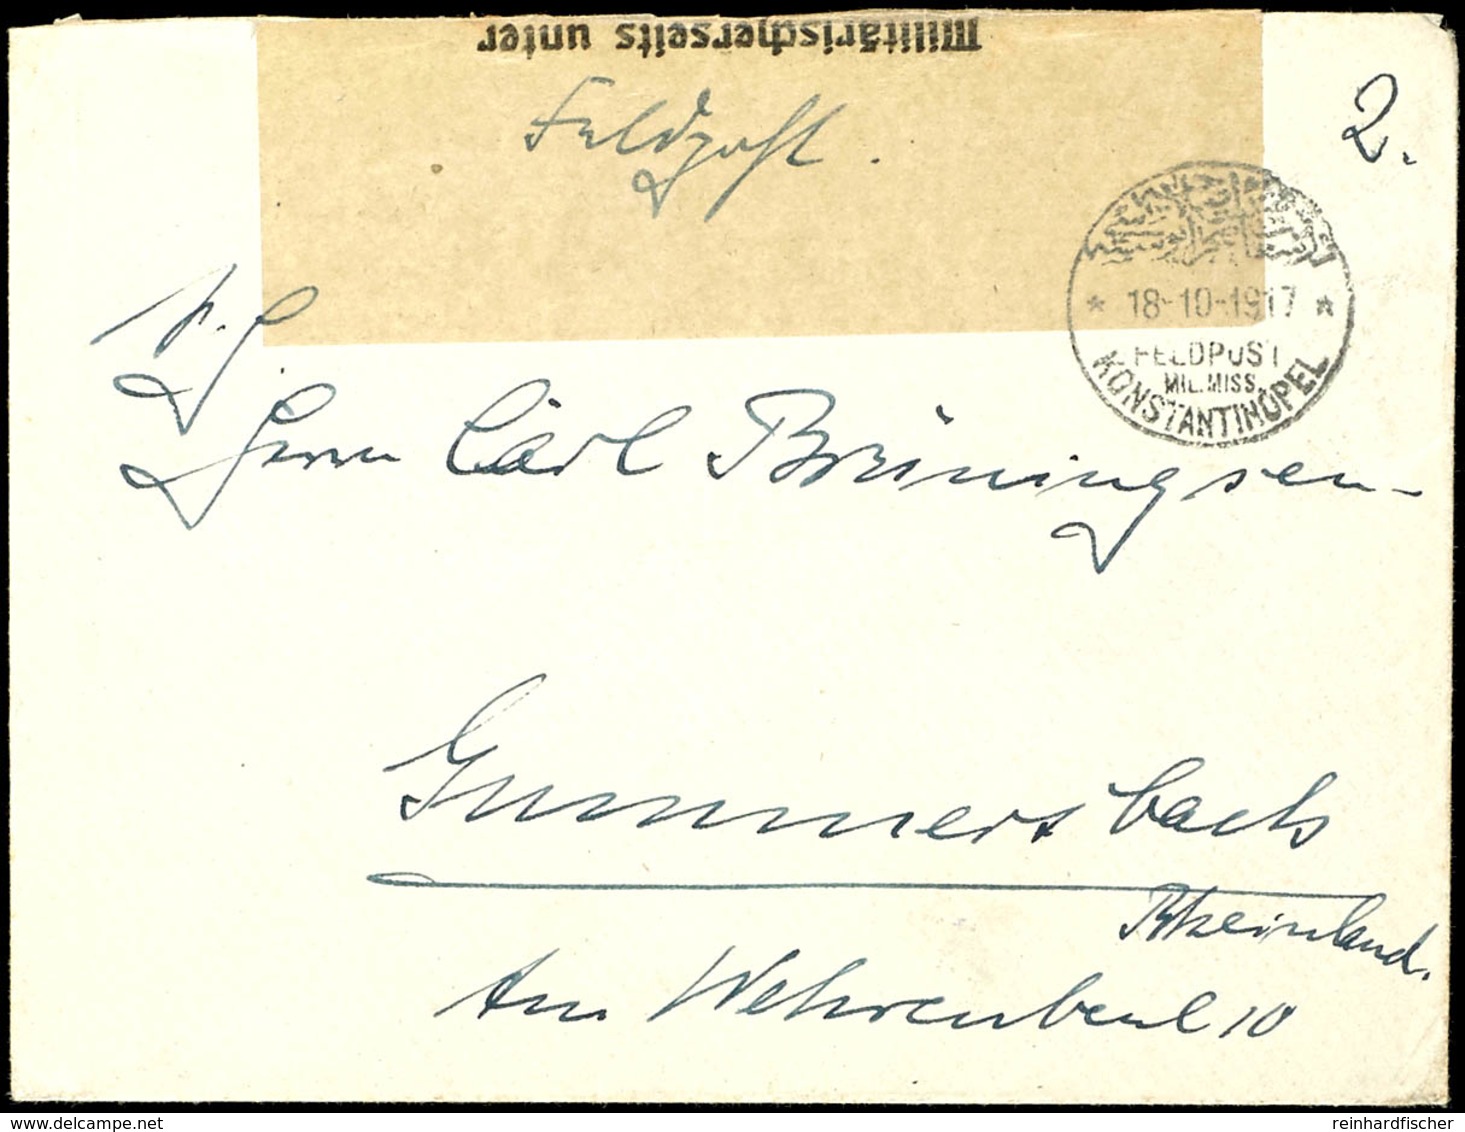 Militärischerseits unter
Feldpost.
2.
18-10-1917
FELDPOST
MIL.MISS.
KONSTANTINOPEL
Herrn Carl Breiningsen-
Gummersbach
Rheinland.
Am Wehrenbeul 10
delcampe.net
reinhardfischer